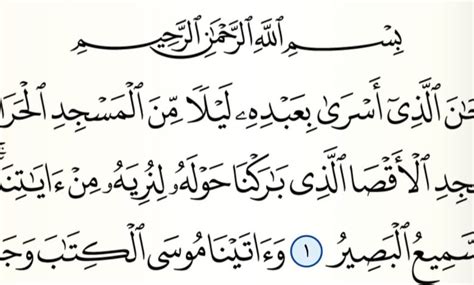 بِسْمِ ٱللَّهِ ٱلرَّحْمَٰنِ ٱلرَّحِيمِ
ٱلَّذِىٓ أَسْرَىٰ بِعَبْدِهِۦ لَيْلًا مِّنَ ٱلْمَسْجِدِ
ٱلْأَقْصَا ٱلَّذِى بَٰرَكْنَا حَوْلَهُۥ لِنُرِيَهُۥ مِنْ
ٱلْبَصِيرُ ١ وَءَاتَيْنَا مُوسَى ٱلْكِتَٰبَ